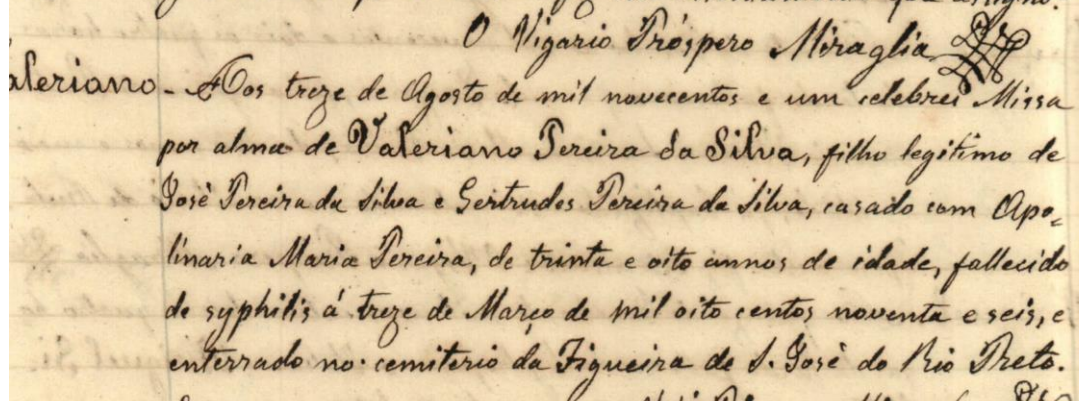 O Vigario Próspero Miraglia
aleriano - Aos treze de Agosto de mil novecentos e um celebrei Missa
por alma de Valeriano Pereira da Silva, filho legitimo de
José Pereira da Silva e Gertrudes Pereira da Silva, casado com Apo-
linaria Maria Pereira, de trinta e oito annos de idade, fallecido
de syphilis á treze de Março de mil oito centos noventa e seis, e
enterrado no cemiterio da Figueira de S. José do Rio Preto.